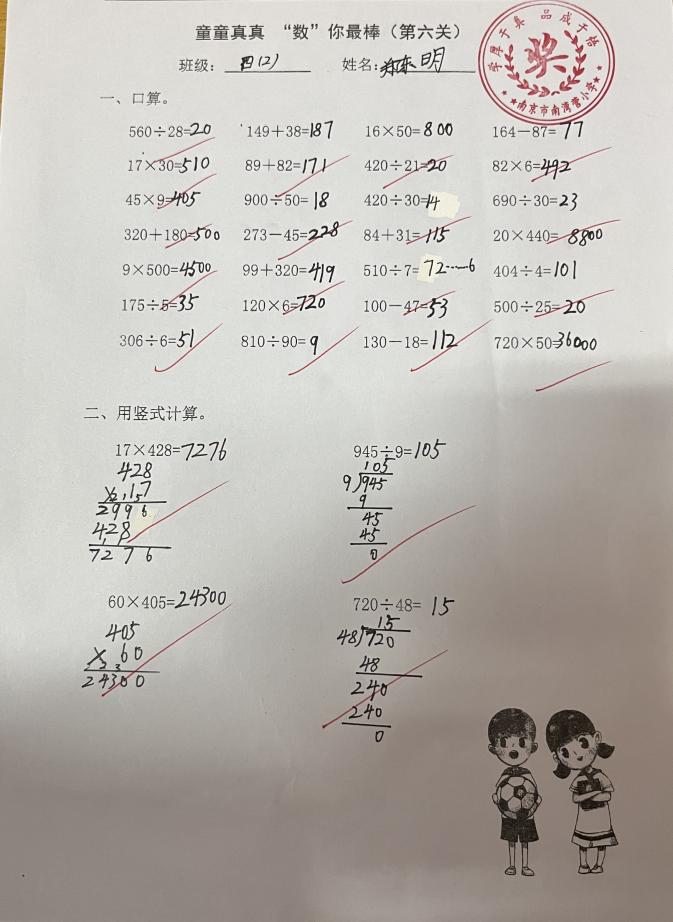 童童真真 “数”你最棒（第六关）
班级: 四(2) 姓名: 明
学厚于真 品成于悟
奖
★南京市南湾营小学★
一、口算。
560÷28=20 149+38=187 16×50=800 164-87=77
17×30=510 89+82=171 420÷21=20 82×6=492
45×9=405 900÷50=18 420÷30=14 690÷30=23
320+180=500 273-45=228 84+31=115 20×440=8800
9×500=4500 99+320=419 510÷7=72……6 404÷4=101
175÷5=35 120×6=720 100-47=53 500÷25=20
306÷6=51 810÷90=9 130-18=112 720×50=36000
二、用竖式计算。
17×428=7276 945÷9=105
428
×17
2996
428
7276
105
9)945
9
45
45
0
60×405=24300 720÷48=15
405
×60
24300
15
48)720
48
240
240
0